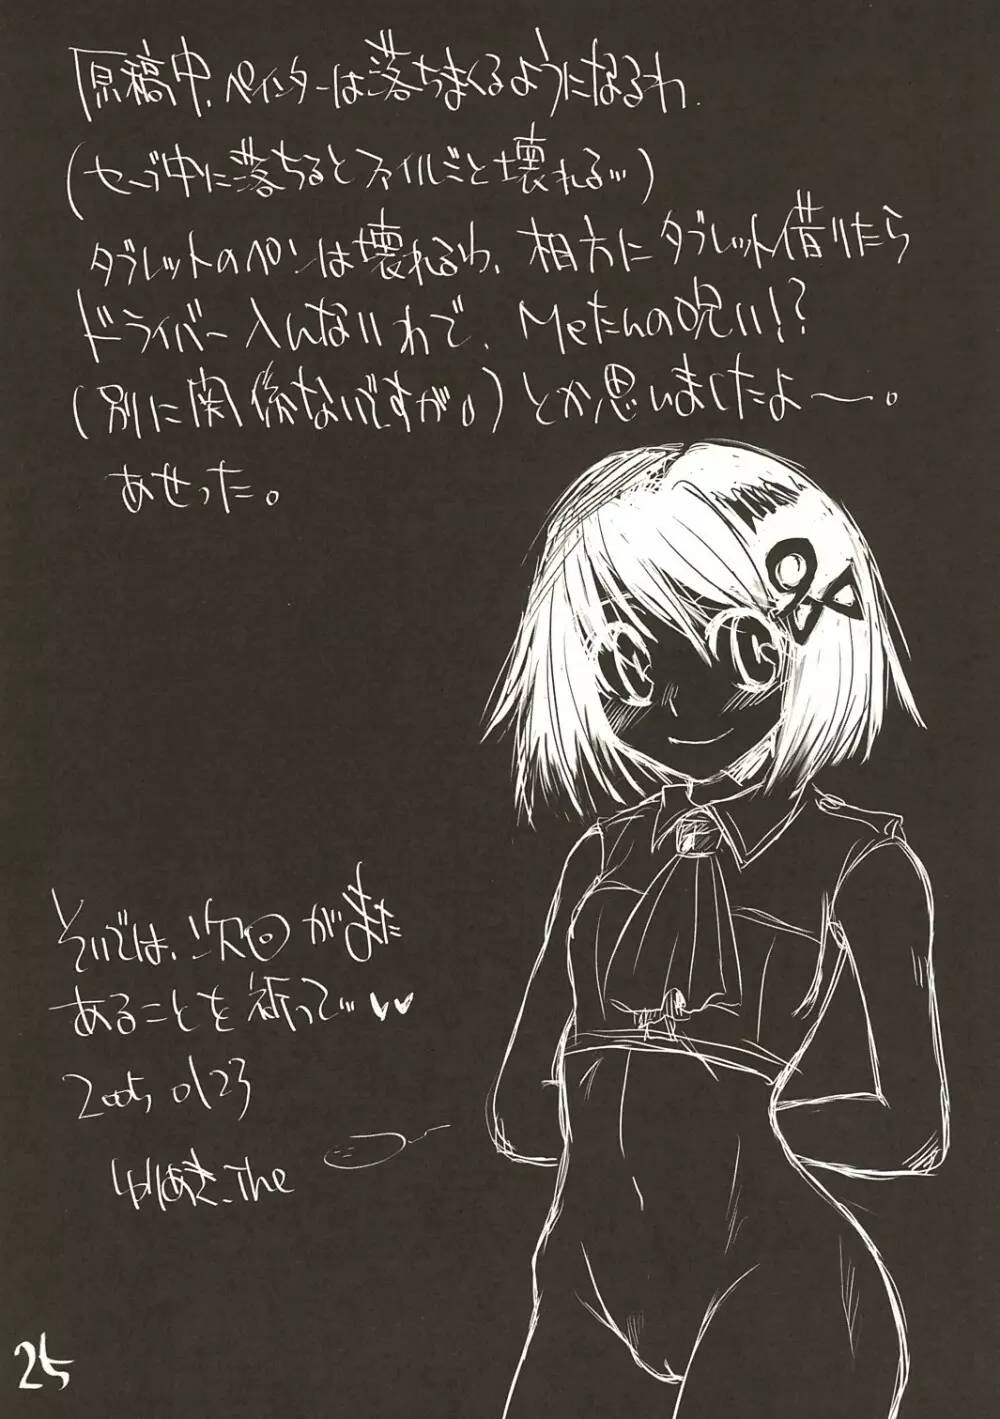 原稿中、ペインターは落ちまくるようになるわ、
(セーブ中に落ちるとファイルごと壊れる…)
タブレットのペンは壊れるわ、相方にタブレット借りたら
ドライバー入んないわで、Meたんの呪い!?
(別に関係ないですが。)とか思いましたよ〜。
あせった。
それでは、次回がまた
あることを祈って…♥♥
2005 0123
The
25